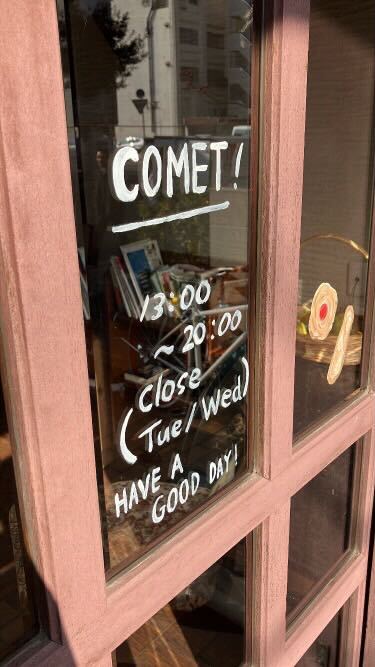 COMET!
13:00
~ 20:00
Close
(Tue/Wed)
HAVE A
GOOD DAY!